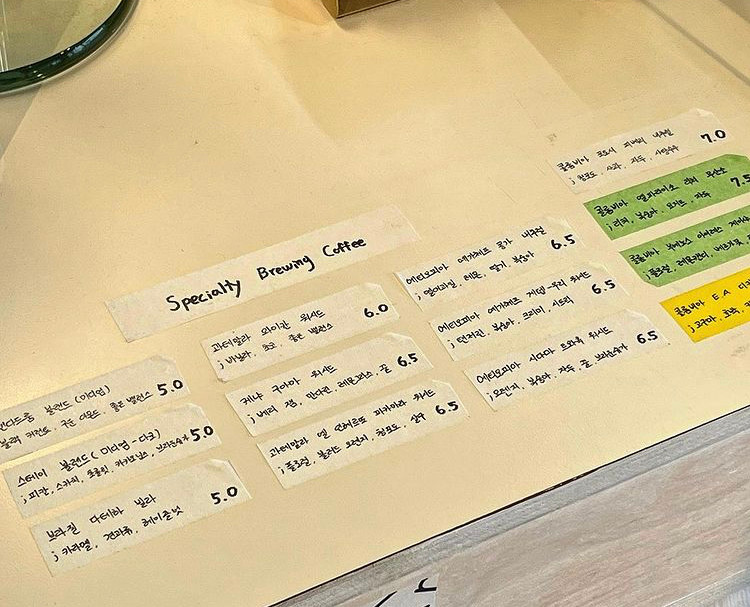 Specialty Brewing Coffee
블렌드 (미디엄) 5.0
블랙 커런트, 구운 아몬드, 좋은 밸런스
스테이 블렌드 (미디엄-다크) 5.0
; 피칸, 스카치, 초콜릿, 카카오닙스, 브라운슈가
브라질 다테하 빌라 5.0
; 카라멜, 견과류, 헤이즐넛
과테말라 와이칸 워시드 6.0
; 바닐라, 초코, 좋은 밸런스
케냐 구아마 워시드 6.5
; 베리 잼, 만다린, 레몬피스, 꿀
과테말라 엘 인헤르또 파카마라 워시드 6.5
; 플로럴, 블러드 오렌지, 청포도, 살구
에티오피아 예가체프 콩가 내추럴 6.5
; 열대과일, 레몬, 딸기, 복숭아
에티오피아 예가체프 게뎁-우리 워시드 6.5
; 탄저린, 복숭아, 크리미, 시트러
에티오피아 시다마 워시드 6.5
; 오렌지, 복숭아, 자두, 꿀, 브라운슈가
콜롬비아 포토시 내추럴 7.0
; 청포도, 사과, 자두, 사탕수수
콜롬비아 엘파라이소 리치 무산소 7.5
; 리치, 복숭아, 요거트, 자두
콜롬비아
; 플로럴, 레몬
콜롬비아 E.A 디카
; 고구마, 호박,